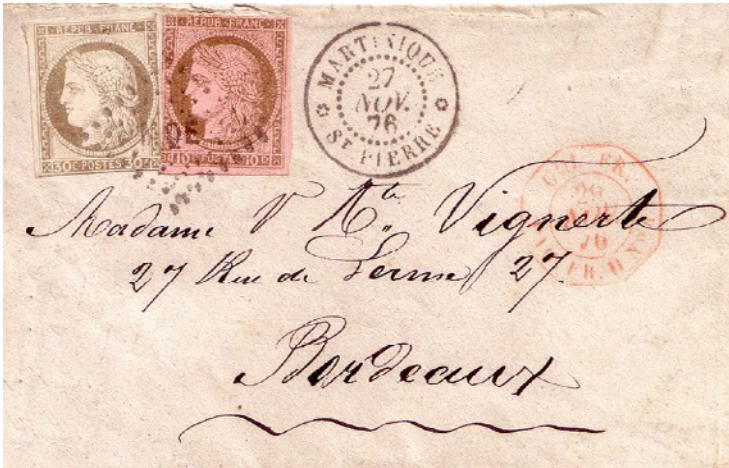 REPUB·FRANC·
30 C·POSTES·30
REPUB·FRANC·
10 C·POSTES·10
MARTINIQUE
27
NOV.
76
ST PIERRE
28
76
Madame Vignerte
27 Rue de 27.
Bordeaux